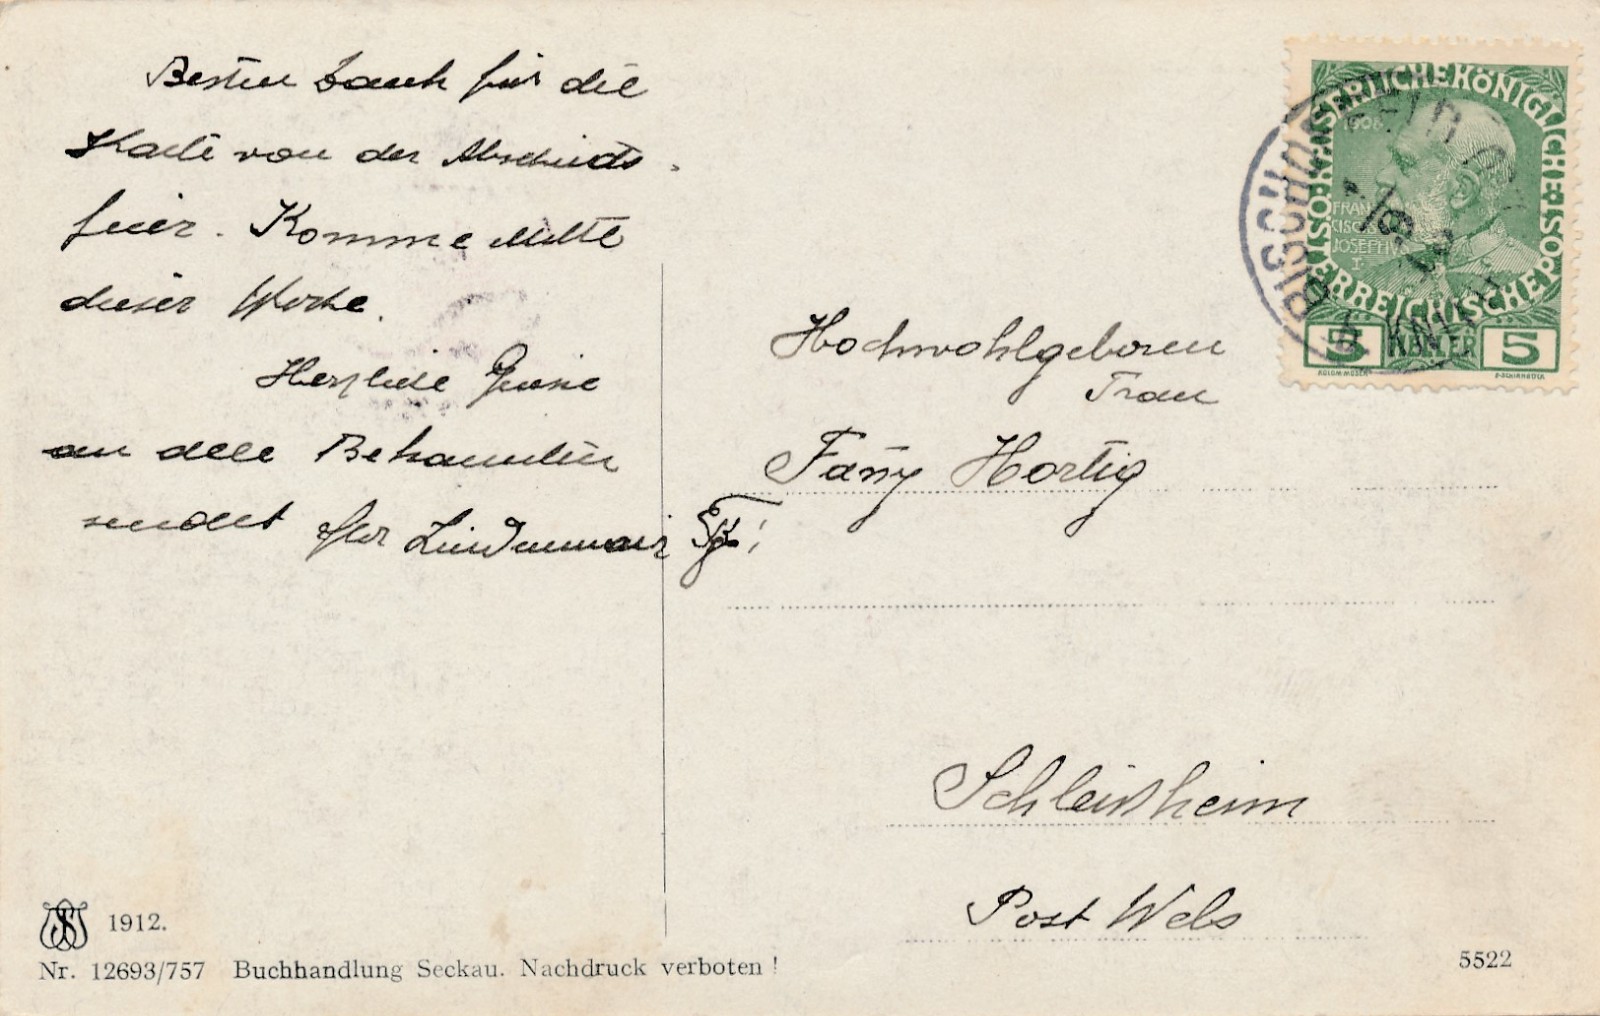 Besten Dank für die
Karte von der Abschieds-
feier. Komme Mitte
dieser Woche.
Herzliche Grüsse
an alle Bekannten
sendet Flor Lindenmair
Hochwohlgeboren
Frau
Fañy Hortig
Schleisheim
Post Wels
KAISERLICHE KÖNIGLICHE
ÖSTERREICHISCHE POST
1908
FRAN
CISCVS
JOSEPHVS
I
5 HELLER 5
KOLOM. MOSER
F. SCHIRNBÖCK
BISCHOF
1912.
Nr. 12693/757 Buchhandlung Seckau. Nachdruck verboten !
5522